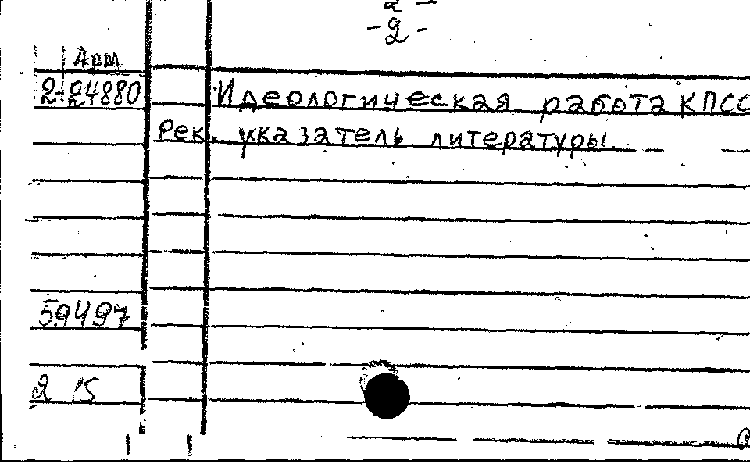 -2-
Арм
2-24880 Идеологическая работа КПСС
Рек. указатель литературы.
59497
2 15